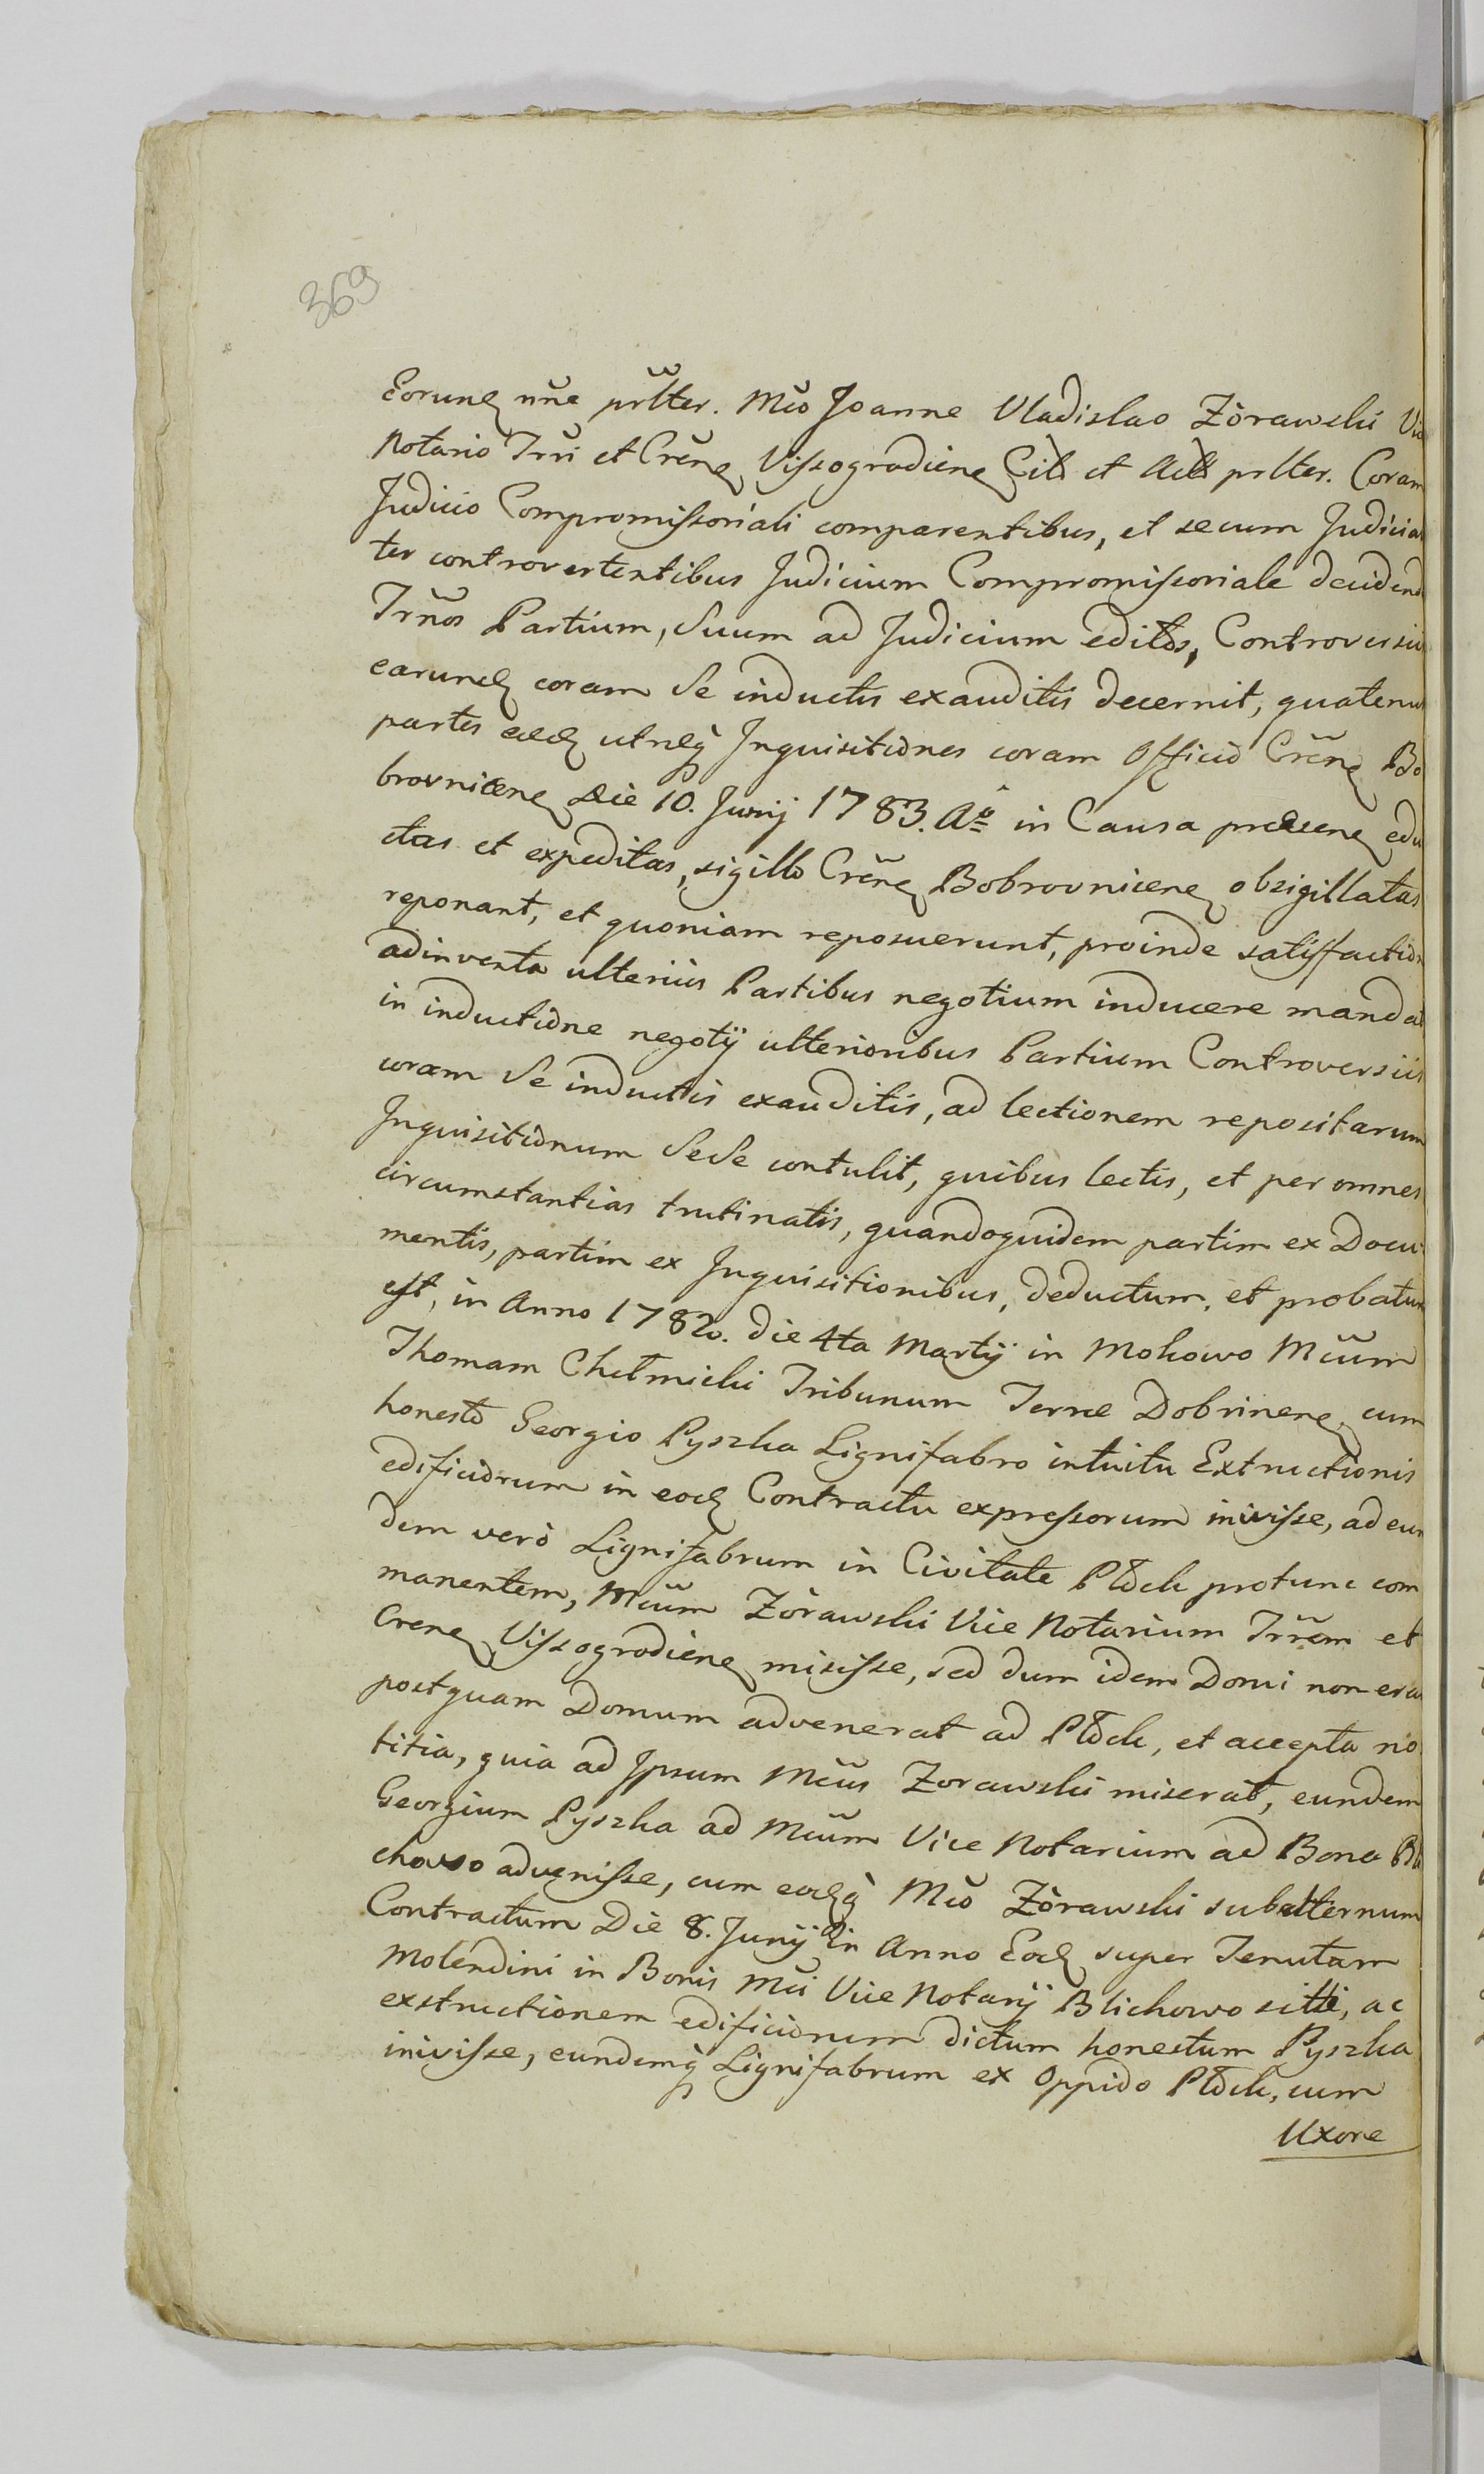 369
Eorund nñe prlter. Mco Joanne Vladislao Zòrawski Vic
Notario Trri et Crenę Vissogrodienę Cit et Act prlter. Coram
Judicio Compromissoriali comparentibus, et secum Judicia
ter controvertentibus Judicium Compromissoriale decidend
Trños Partium, Suum ad Judicium editos, Controversii
earund coram Se inductis exauditis decernit, quatenus
partes eaed utręq Inquisitiones coram Officio Crenę Bo
brovnicenę Die 10. Junij 1783. Aō in Causa præsenę edu
ctas et expeditas, sigillo Crenę Bobrovnicenę obsigillatas
reponant, et quoniam reposuerunt, proinde satisfaction
adinventa ulterius Partibus negotium inducere mandat
in inductione negotÿ ulterioribus Partium Controversiis
coram Se inductis exauditis, ad lectionem repositarum
Inquisitionum SeSe contulit, quibus lectis, et per omnes
circumstantias trutinatis, quandoquidem partim ex Docu
mentis, partim ex Inquisitionibus, deductum, et probatum
est, in Anno 1782. die 4ta Martÿ in Mokowo Mcum
Thomam Chełmicki Tribunum Terræ Dobrinenę cum
honesto Georgio Pyszka Lignifabro intuitu Extructionis
edificiorum in eod Contractu expressorum inivisse, ad eun
dem verò Lignifabrum in Civitate Płock protunc com
manentem, Mcum Zòrawski Vice Notarium Trrem et
Crenę Vissogrodienę misisse, sed dum idem Domi non era
postquam Domum advenerat ad Płock, et accepta no
titia, quia ad Ipsum Mcus Zorawski miserat, eundem
Georgium Pyszka ad Mcum Vice Notarium ad Bona Bli
chowo advenisse, cum eodq Mco Zòrawski subalternum
Contractum Die 8. Junÿ in Anno Eod super Tenutam
Molendini in Bonis Mci Vice Notarÿ Blichowo siti, ac
exstructionem edificiorum dictum honestum Pyszka
inivisse, eundemq Lignifabrum ex Oppido Płock, cum
Uxore